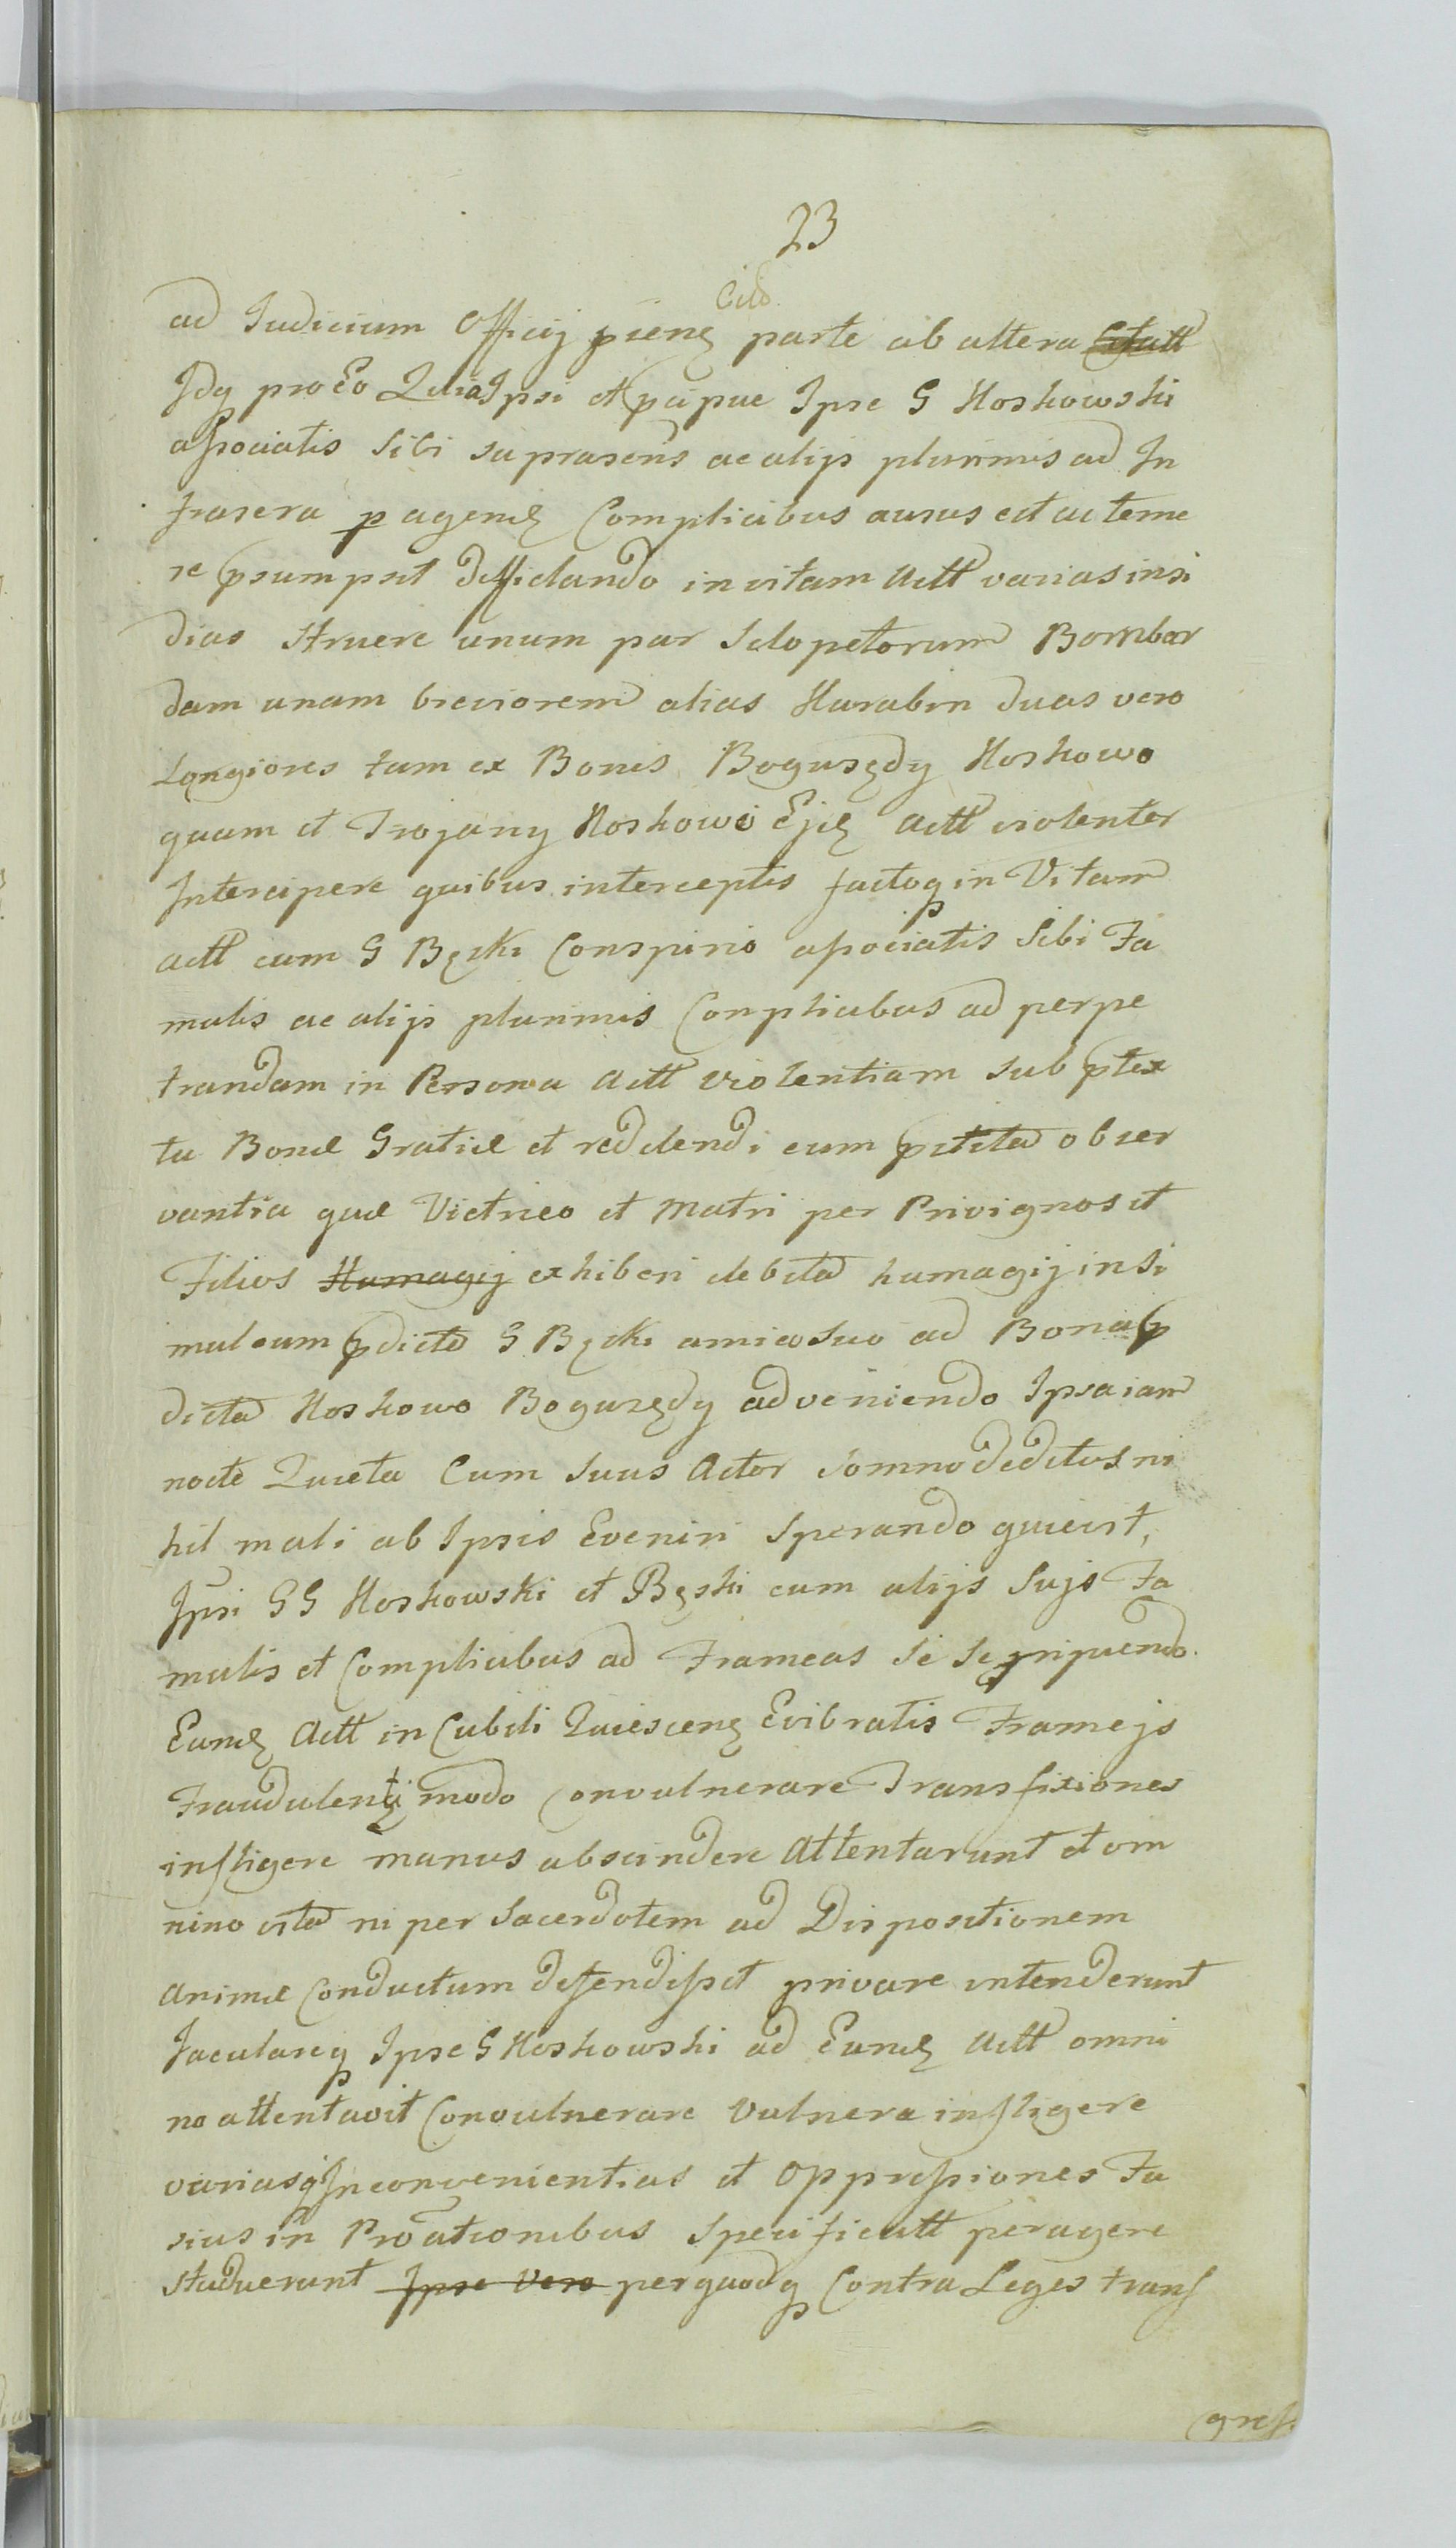 23
Citt
ad Iudicium Officij p̄ieng parte ab altera Citatt
Idq pro Eo Quia Ipsi et p̄cipue Ipse G Koskowski
associatis Sibi suprascris ac alijs plurimis ad In
frascra p agend Complicibus ausus est ac teme
re p̄sumpsit diffidando in vitam Actt varias insi
dias Struere unum par Sclopetorum Bombar
dam unam breviorem alias Karabin duas vero
Longiores tam ex Bonis Boguszędy Koskowo
quam et Trojany Koskowo Ejusd Actt violenter
Intercipere quibus interceptis factoq in Vitam
actt cum G Bęcki Conspirio associatis Sibi Fa
mulis ac alijs plurimis Conplicibus ad perpe
trandam in Persona Actt violentiam sub p̄tex
tu Bonæ Gratiæ et reddendi cum p̄stita obser
vantia quæ Victrico et Matri per Privignos et
Filios Humagij exhiberi debita humagij insi
mul cum p̄dicto G Bęcki amico suo ad Bona p̄
dicta Koskowo Boguszędy adveniendo Ipsa iam
nocte Quieta Cum Suus Actor Somno deditus ni
hil mali ab Ipsis Eveniri Sperando quievit,
Ipsi GG Koskowski et Bęski cum alijs Sujs Fa
mulis et Complicibus ad Frameas Se Se pripiendo
Eund Actt in Cubili Quiesceng Evibratis Framejs
Fraudulenti modo Convulnerare Transfixiones
infligere manus abscindere Attentarunt et om
nino vita ni per Sacerdotem ad Dispositionem
animæ Conductum defendisset privare intenderunt
Jaculareq Ipse G Koskowski ad Eund Actt omni
no attentavit Convulnerare Vulnera infligere
variasq Inconvenientias et Oppressiones Fu
sius in Proātionibus Specificatt peragere
studuerunt Ipse Vero per quodq Contra Leges trans
gres